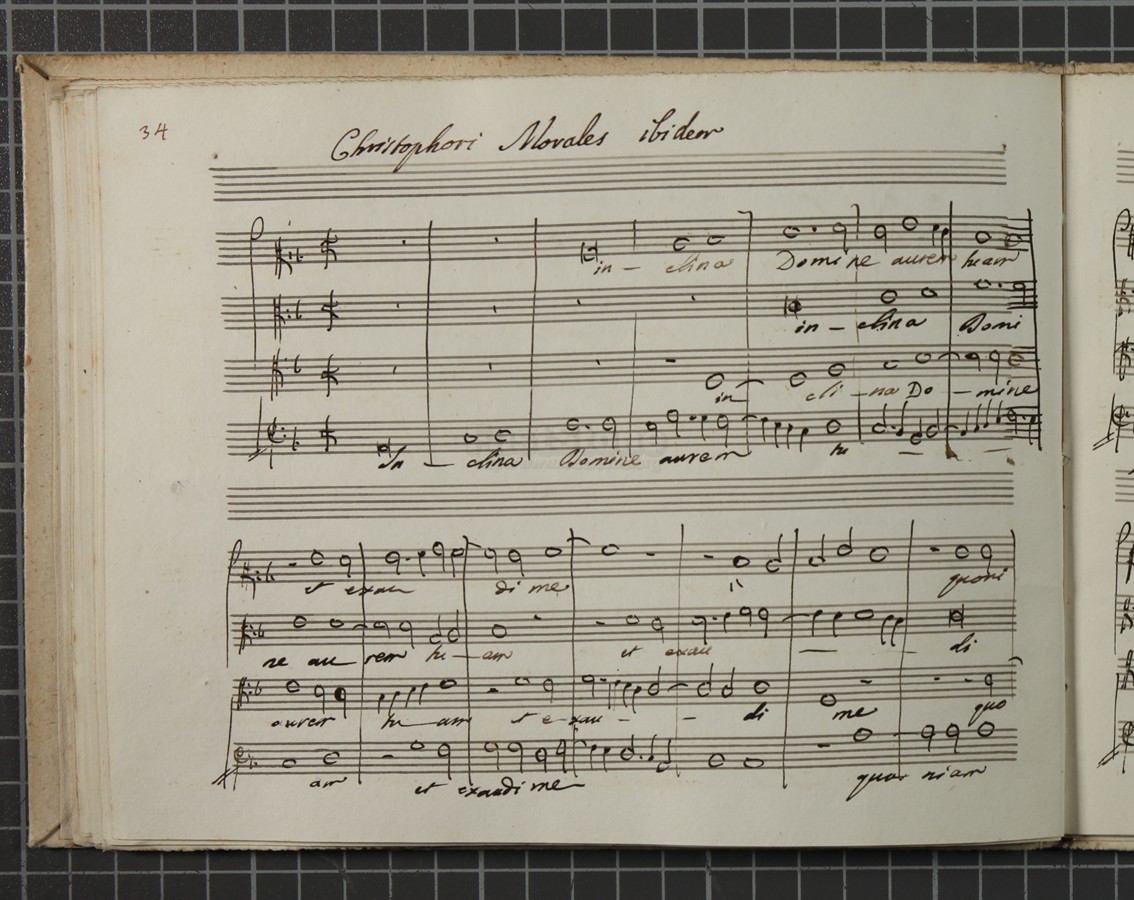 34
Christophori Morales ibidem
in - clina Domine aurem tuam
in - clina Domi
in cli - na Do - mine
In - clina Domine aurem tu - -
et exau di me ij quoni
ne au rem tu - am et exau - - di
aurem tu am et e - xau - - di me quo
am et exaudi me quo niam